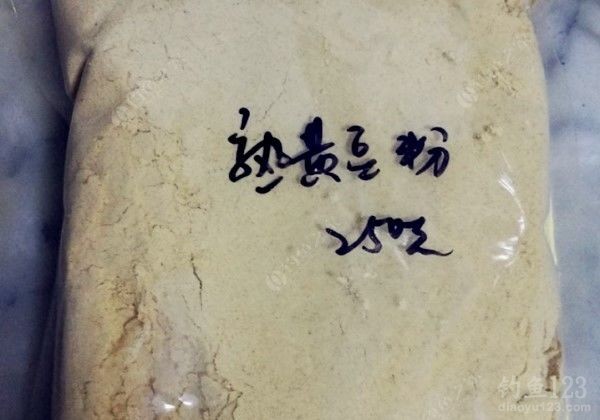 熟黄豆粉
250克
钓鱼123
diaoyu123.com